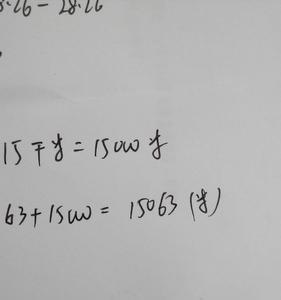 8.26 - 28.26
15千米=15000米
63+15000= 15063 (米)